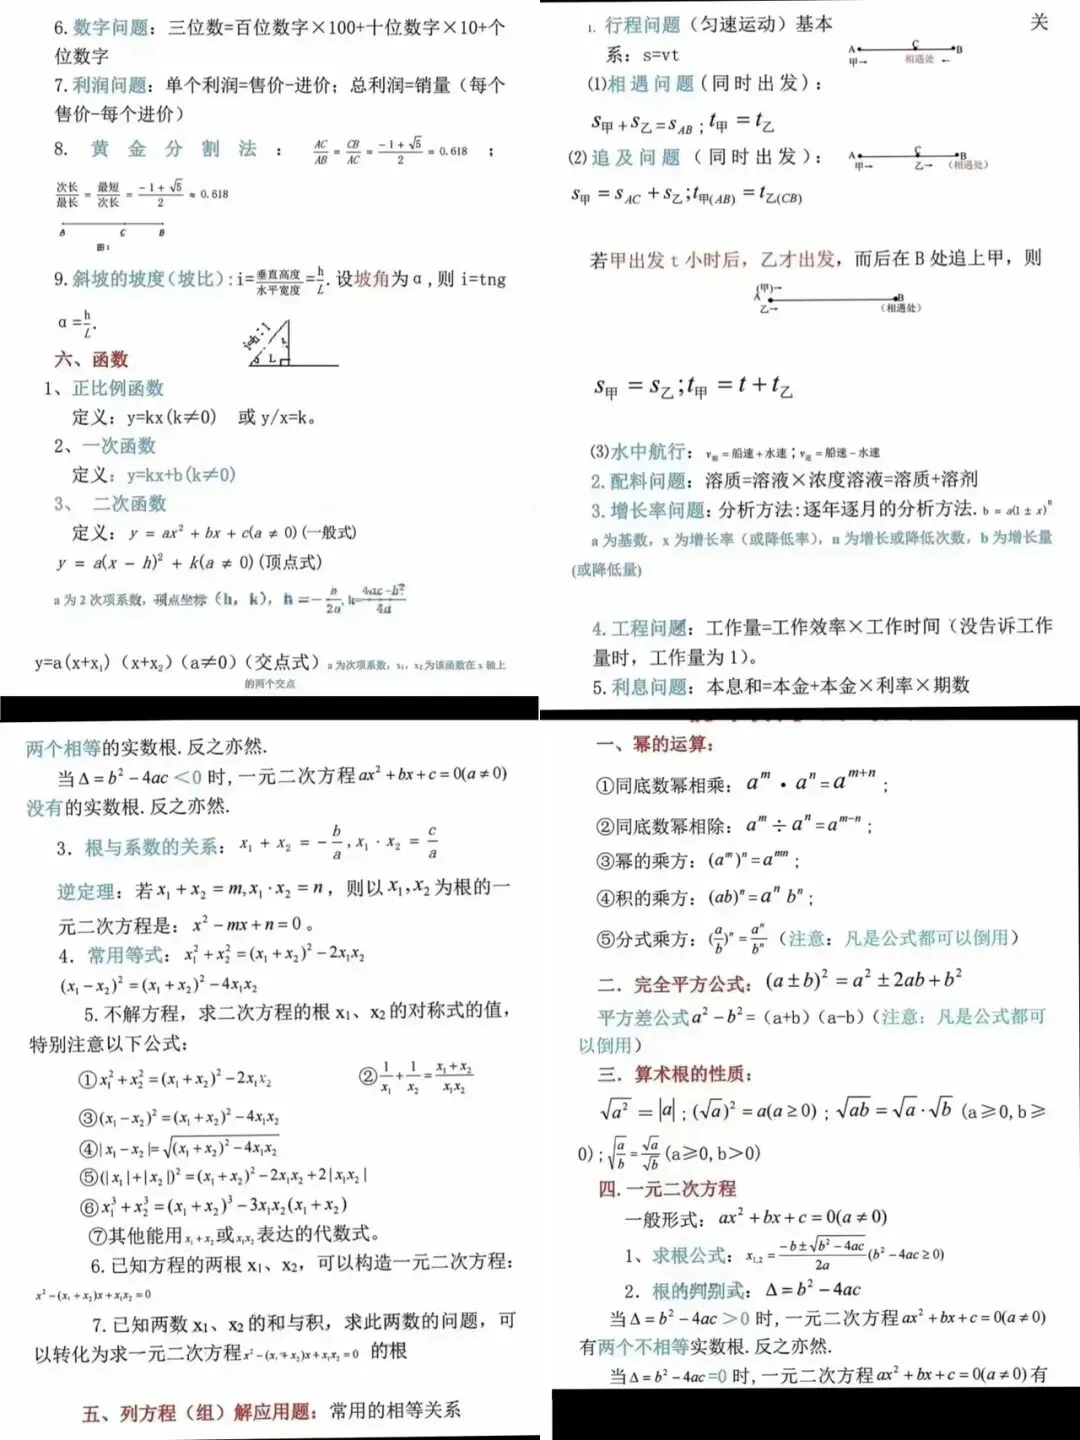 6.数字问题：三位数=百位数字×100+十位数字×10+个
位数字
7.利润问题：单个利润=售价-进价；总利润=销量（每个
售价-每个进价）
8. 黄金分割法： AC/AB = CB/AC = (-1+√5)/2 = 0.618 ；
次长/最长 = 最短/次长 = (-1+√5)/2 ≈ 0.618
A C B
图1
9.斜坡的坡度（坡比）:i=垂直高度/水平宽度=h/L.设坡角为α,则 i=tng
α=h/L.
i=h:l
h
α L
六、函数
1、正比例函数
定义：y=kx(k≠0) 或 y/x=k。
2、一次函数
定义：y=kx+b(k≠0)
3、 二次函数
定义：y = ax² + bx + c(a ≠ 0)(一般式)
y = a(x - h)² + k(a ≠ 0)(顶点式)
a 为2次项系数，顶点坐标（h, k），h =-b/2a, k=(4ac-b²)/4a
y=a(x+x₁)（x+x₂）(a≠0)（交点式）a 为次项系数，x₁，x₂为该函数在 x 轴上
的两个交点
1. 行程问题（匀速运动）基本 关
系：s=vt
A C B
甲→ 相遇处 ←
⑴相遇问题(同时出发)：
s甲+s乙=sAB；t甲=t乙
⑵追及问题（同时出发）：
A C B
甲→ 乙→ （相遇处）
s甲=sAC+s乙;t甲(AB)=t乙(CB)
若甲出发 t 小时后，乙才出发，而后在 B 处追上甲，则
(甲)→
A B
乙→ （相遇处）
s甲=s乙;t甲=t+t乙
⑶水中航行：v顺=船速+水速；v逆=船速-水速
2.配料问题：溶质=溶液×浓度溶液=溶质+溶剂
3.增长率问题：分析方法:逐年逐月的分析方法.b = a(1 ± x)ⁿ
a 为基数，x 为增长率（或降低率），n 为增长或降低次数，b 为增长量
(或降低量)
4.工程问题：工作量=工作效率×工作时间（没告诉工作
量时，工作量为 1）。
5.利息问题：本息和=本金+本金×利率×期数
两个相等的实数根.反之亦然.
当Δ=b²-4ac＜0 时,一元二次方程ax²+bx+c=0(a≠0)
没有的实数根.反之亦然.
3. 根与系数的关系：x₁ + x₂ = -b/a , x₁ · x₂ = c/a
逆定理：若x₁+x₂=m,x₁·x₂=n，则以x₁,x₂为根的一
元二次方程是：x²-mx+n=0。
4. 常用等式：x₁²+x₂²=(x₁+x₂)²-2x₁x₂
(x₁-x₂)²=(x₁+x₂)²-4x₁x₂
5.不解方程，求二次方程的根 x₁、x₂的对称式的值，
特别注意以下公式：
①x₁²+x₂²=(x₁+x₂)²-2x₁x₂ ②1/x₁+1/x₂=(x₁+x₂)/x₁x₂
③(x₁-x₂)²=(x₁+x₂)²-4x₁x₂
④|x₁-x₂|=√((x₁+x₂)²-4x₁x₂)
⑤(|x₁|+|x₂|)²=(x₁+x₂)²-2x₁x₂+2|x₁x₂|
⑥x₁³+x₂³=(x₁+x₂)³-3x₁x₂(x₁+x₂)
⑦其他能用x₁+x₂或x₁x₂表达的代数式。
6.已知方程的两根 x₁、x₂，可以构造一元二次方程：
x²-(x₁+x₂)x+x₁x₂=0
7.已知两数 x₁、x₂的和与积，求此两数的问题，可
以转化为求一元二次方程x²-(x₁+x₂)x+x₁x₂=0 的根
五、列方程（组）解应用题：常用的相等关系
一、幂的运算：
①同底数幂相乘：aᵐ·aⁿ=aᵐ⁺ⁿ；
②同底数幂相除：aᵐ÷aⁿ=aᵐ⁻ⁿ；
③幂的乘方：(aᵐ)ⁿ=aᵐⁿ；
④积的乘方：(ab)ⁿ=aⁿ bⁿ；
⑤分式乘方：(a/b)ⁿ=aⁿ/bⁿ（注意：凡是公式都可以倒用）
二．完全平方公式：(a±b)²=a²±2ab+b²
平方差公式a²-b²=（a+b）（a-b）（注意：凡是公式都可
以倒用）
三．算术根的性质：
√a²=|a|；(√a)²=a(a≥0)；√ab=√a·√b(a≥0,b≥
0)；√(a/b)=√a/√b(a≥0,b>0)
四.一元二次方程
一般形式：ax²+bx+c=0(a≠0)
1、求根公式：x₁,₂=(-b±√(b²-4ac))/2a(b²-4ac≥0)
2．根的判别式：Δ=b²-4ac
当Δ=b²-4ac＞0 时,一元二次方程ax²+bx+c=0(a≠0)
有两个不相等实数根.反之亦然.
当Δ=b²-4ac=0 时,一元二次方程ax²+bx+c=0(a≠0)有